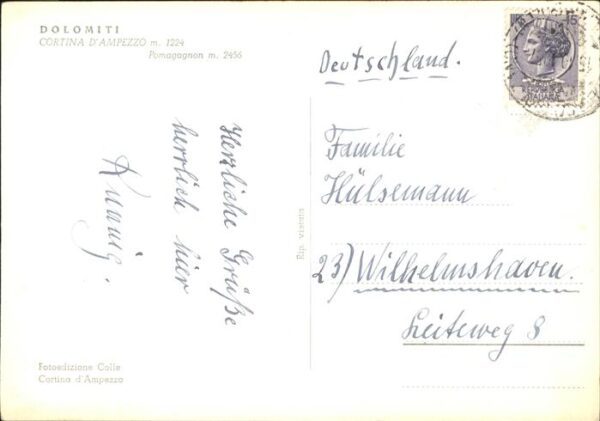 DOLOMITI
CORTINA D'AMPEZZO m. 1224
Pomagagnon m. 2456
Herzliche Grüße
herrlich hier
Deutschland.
Familie
Hülsemann
23) Wilhelmshaven.
Leiteweg 8
Rip. vietata
Fotoedizione Colle
Cortina d'Ampezzo
15
ITALIANA